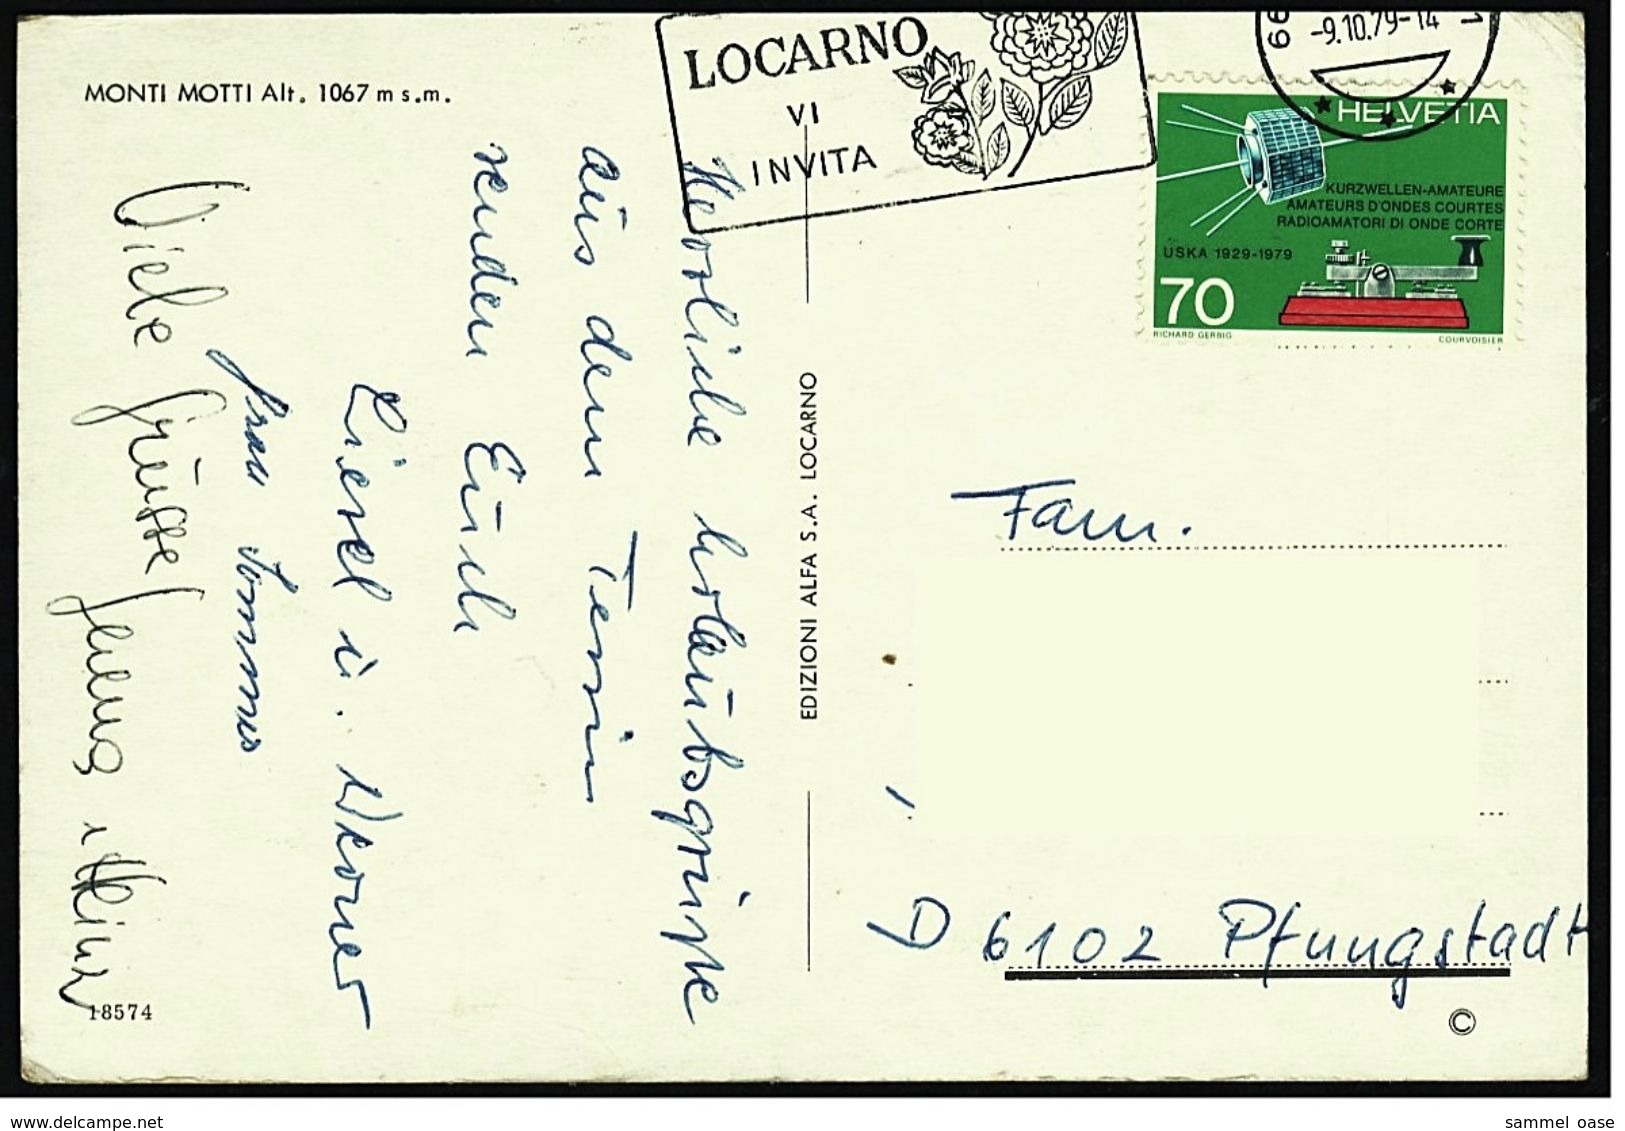 MONTI MOTTI Alt. 1067 m s.m.
LOCARNO
VI
INVITA
-9.10.79-14
HELVETIA
KURZWELLEN-AMATEURE
AMATEURS D'ONDES COURTES
RADIOAMATORI DI ONDE CORTE
USKA 1929-1979
70
RICHARD GERBIG
COURVOISIER
Herzliche Urlaubsgrüsse
aus dem Tessin
senden Euch
Liesel u. Werner
Frau
Viele Grüsse
EDIZIONI ALFA S.A. LOCARNO
Fam.
D 6102 Pfungstadt
18574
©
www.delcampe.net
sammel_oase